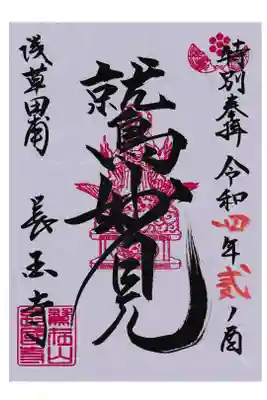 特別奉拝 令和四年 弐ノ酉
鷲妙見
浅草田甫 長国寺
鷲在山
長國寺